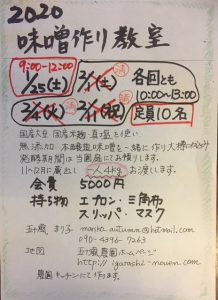 2020
味噌作り教室
9:00-12:00
1/25(土) 2/1(土) 済 各回とも
10:00〜13:00
2/4(火) 2/11(祝) 済 定員10名
国産大豆 国産米麹・真塩を使い
無添加 本醸造味噌を一緒に作り
発酵期間は当園にてお預りします。
11〜12月に蔵出し 一人4kgお渡しします。
会費 5000円
持ち物 エプロン・三角布
スリッパ・マスク
五十嵐 まり子 marika_autumn@hotmail.com
090-4396-7263
地図 五十嵐農園ホームページ
http://igarashi-nouen.com
農園キッチンにて作ります。